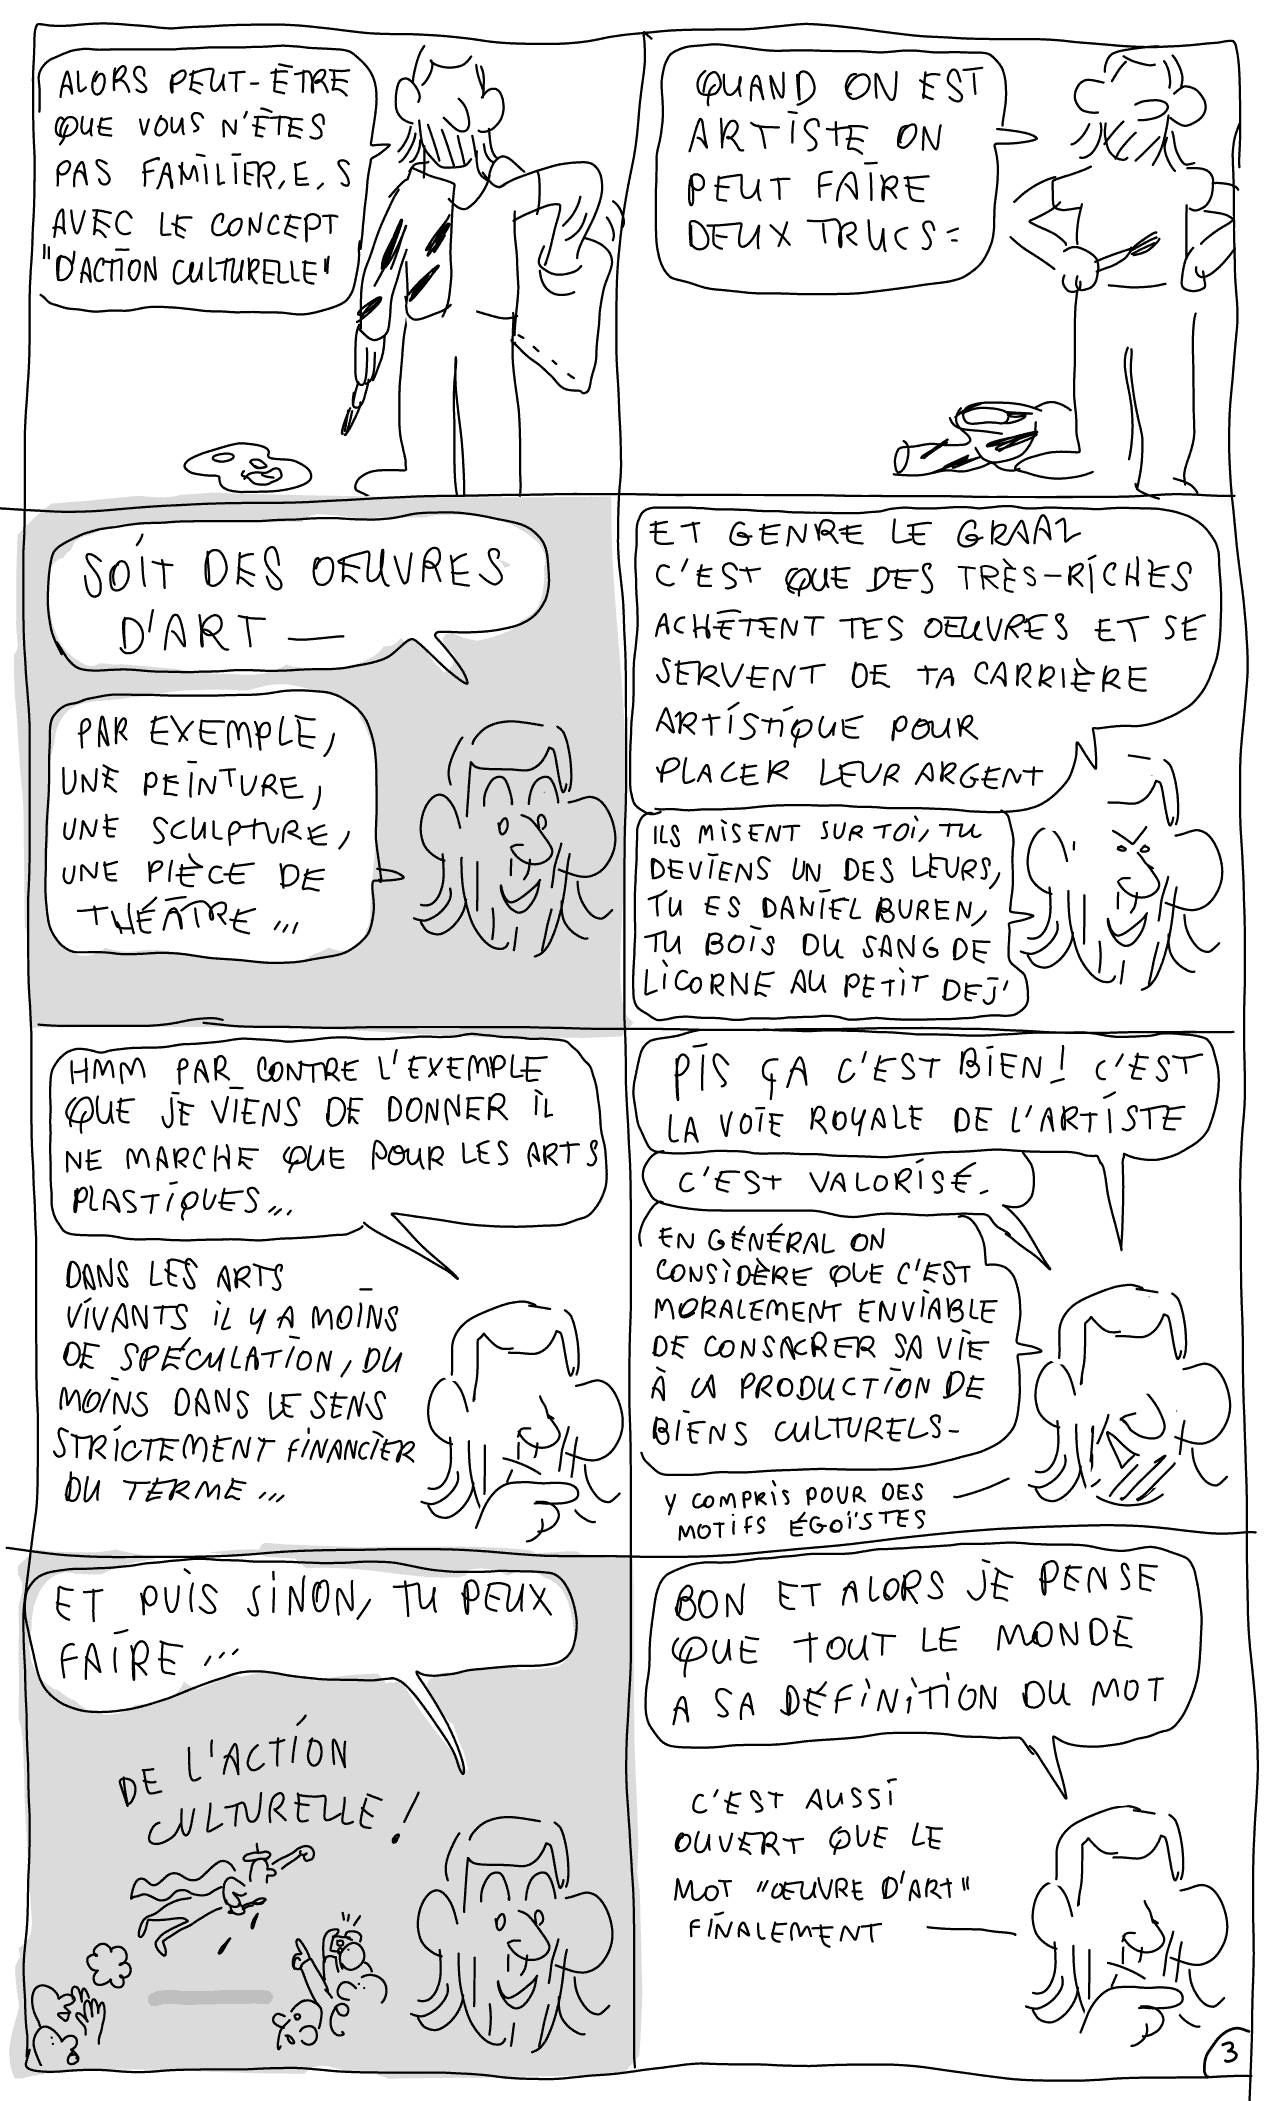 ALORS PEUT-ÊTRE
QUE VOUS N'ÊTES
PAS FAMILIER.E.S
AVEC LE CONCEPT
"D'ACTION CULTURELLE"
QUAND ON EST
ARTISTE ON
PEUT FAIRE
DEUX TRUCS=
SOIT DES OEUVRES
D'ART —
PAR EXEMPLE,
UNE PEINTURE,
UNE SCULPTURE,
UNE PIÈCE DE
THÉÂTRE...
ET GENRE LE GRAAL
C'EST QUE DES TRÈS-RICHES
ACHÈTENT TES OEUVRES ET SE
SERVENT DE TA CARRIÈRE
ARTISTIQUE POUR
PLACER LEUR ARGENT
ILS MISENT SUR TOI, TU
DEVIENS UN DES LEURS,
TU ES DANIEL BUREN,
TU BOIS DU SANG DE
LICORNE AU PETIT DEJ'
HMM PAR CONTRE L'EXEMPLE
QUE JE VIENS DE DONNER IL
NE MARCHE QUE POUR LES ARTS
PLASTIQUES...
DANS LES ARTS
VIVANTS IL Y A MOINS
DE SPÉCULATION, DU
MOINS DANS LE SENS
STRICTEMENT FINANCIER
DU TERME...
PIS ÇA C'EST BIEN! C'EST
LA VOIE ROYALE DE L'ARTISTE
C'EST VALORISÉ.
EN GÉNÉRAL ON
CONSIDÈRE QUE C'EST
MORALEMENT ENVIABLE
DE CONSACRER SA VIE
À LA PRODUCTION DE
BIENS CULTURELS-
Y COMPRIS POUR DES
MOTIFS ÉGOÏSTES
ET PUIS SINON, TU PEUX
FAIRE...
DE L'ACTION
CULTURELLE!
BON ET ALORS JE PENSE
QUE TOUT LE MONDE
A SA DÉFINITION DU MOT
C'EST AUSSI
OUVERT QUE LE
MOT "ŒUVRE D'ART"
FINALEMENT
3